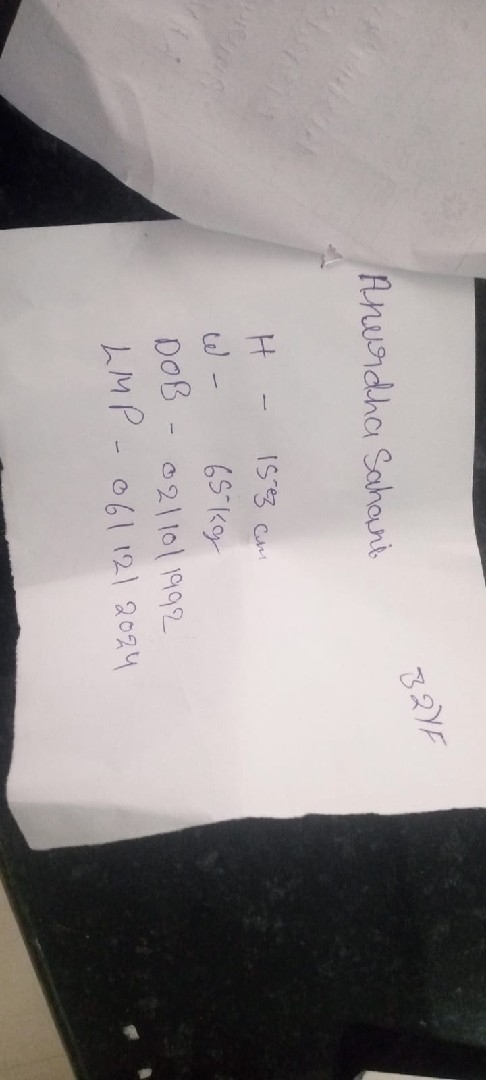 Anuurdha Sahani
32Y/F
H - 153 cm
W - 65 kg
DOB - 02/10/1992
LMP - 06/12/2024